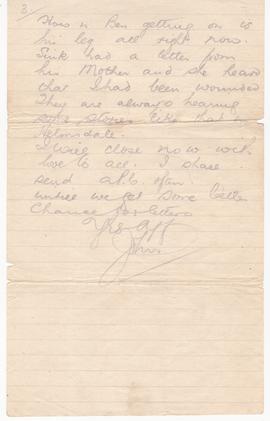 3/
How is Ben getting on is
his leg all right now.
Tink had a letter from
his Mother and she heard
that I had been wounded
They are always hearing
stories like that in
Helmsdale.
I will close now with
love to all. I shall
send a P.C. often
untill we get some better
Chance for letters
Yrs Aff